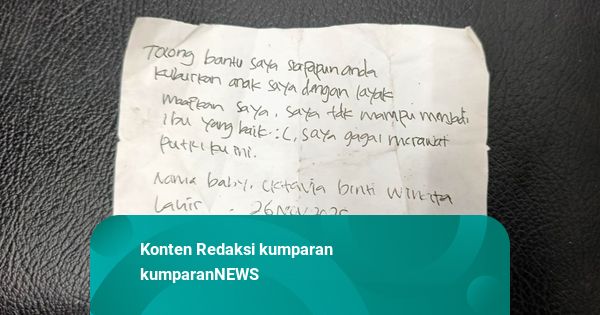 Tolong bantu saya siapapun anda
kuburkan anak saya dengan layak
maafkan saya, saya tdk mampu menjadi
ibu yang baik :(, saya gagal merawat
putriku ini.
Nama baby. Oktavia binti
Lahir . 26 Nov 2025
Konten Redaksi kumparan
kumparanNEWS